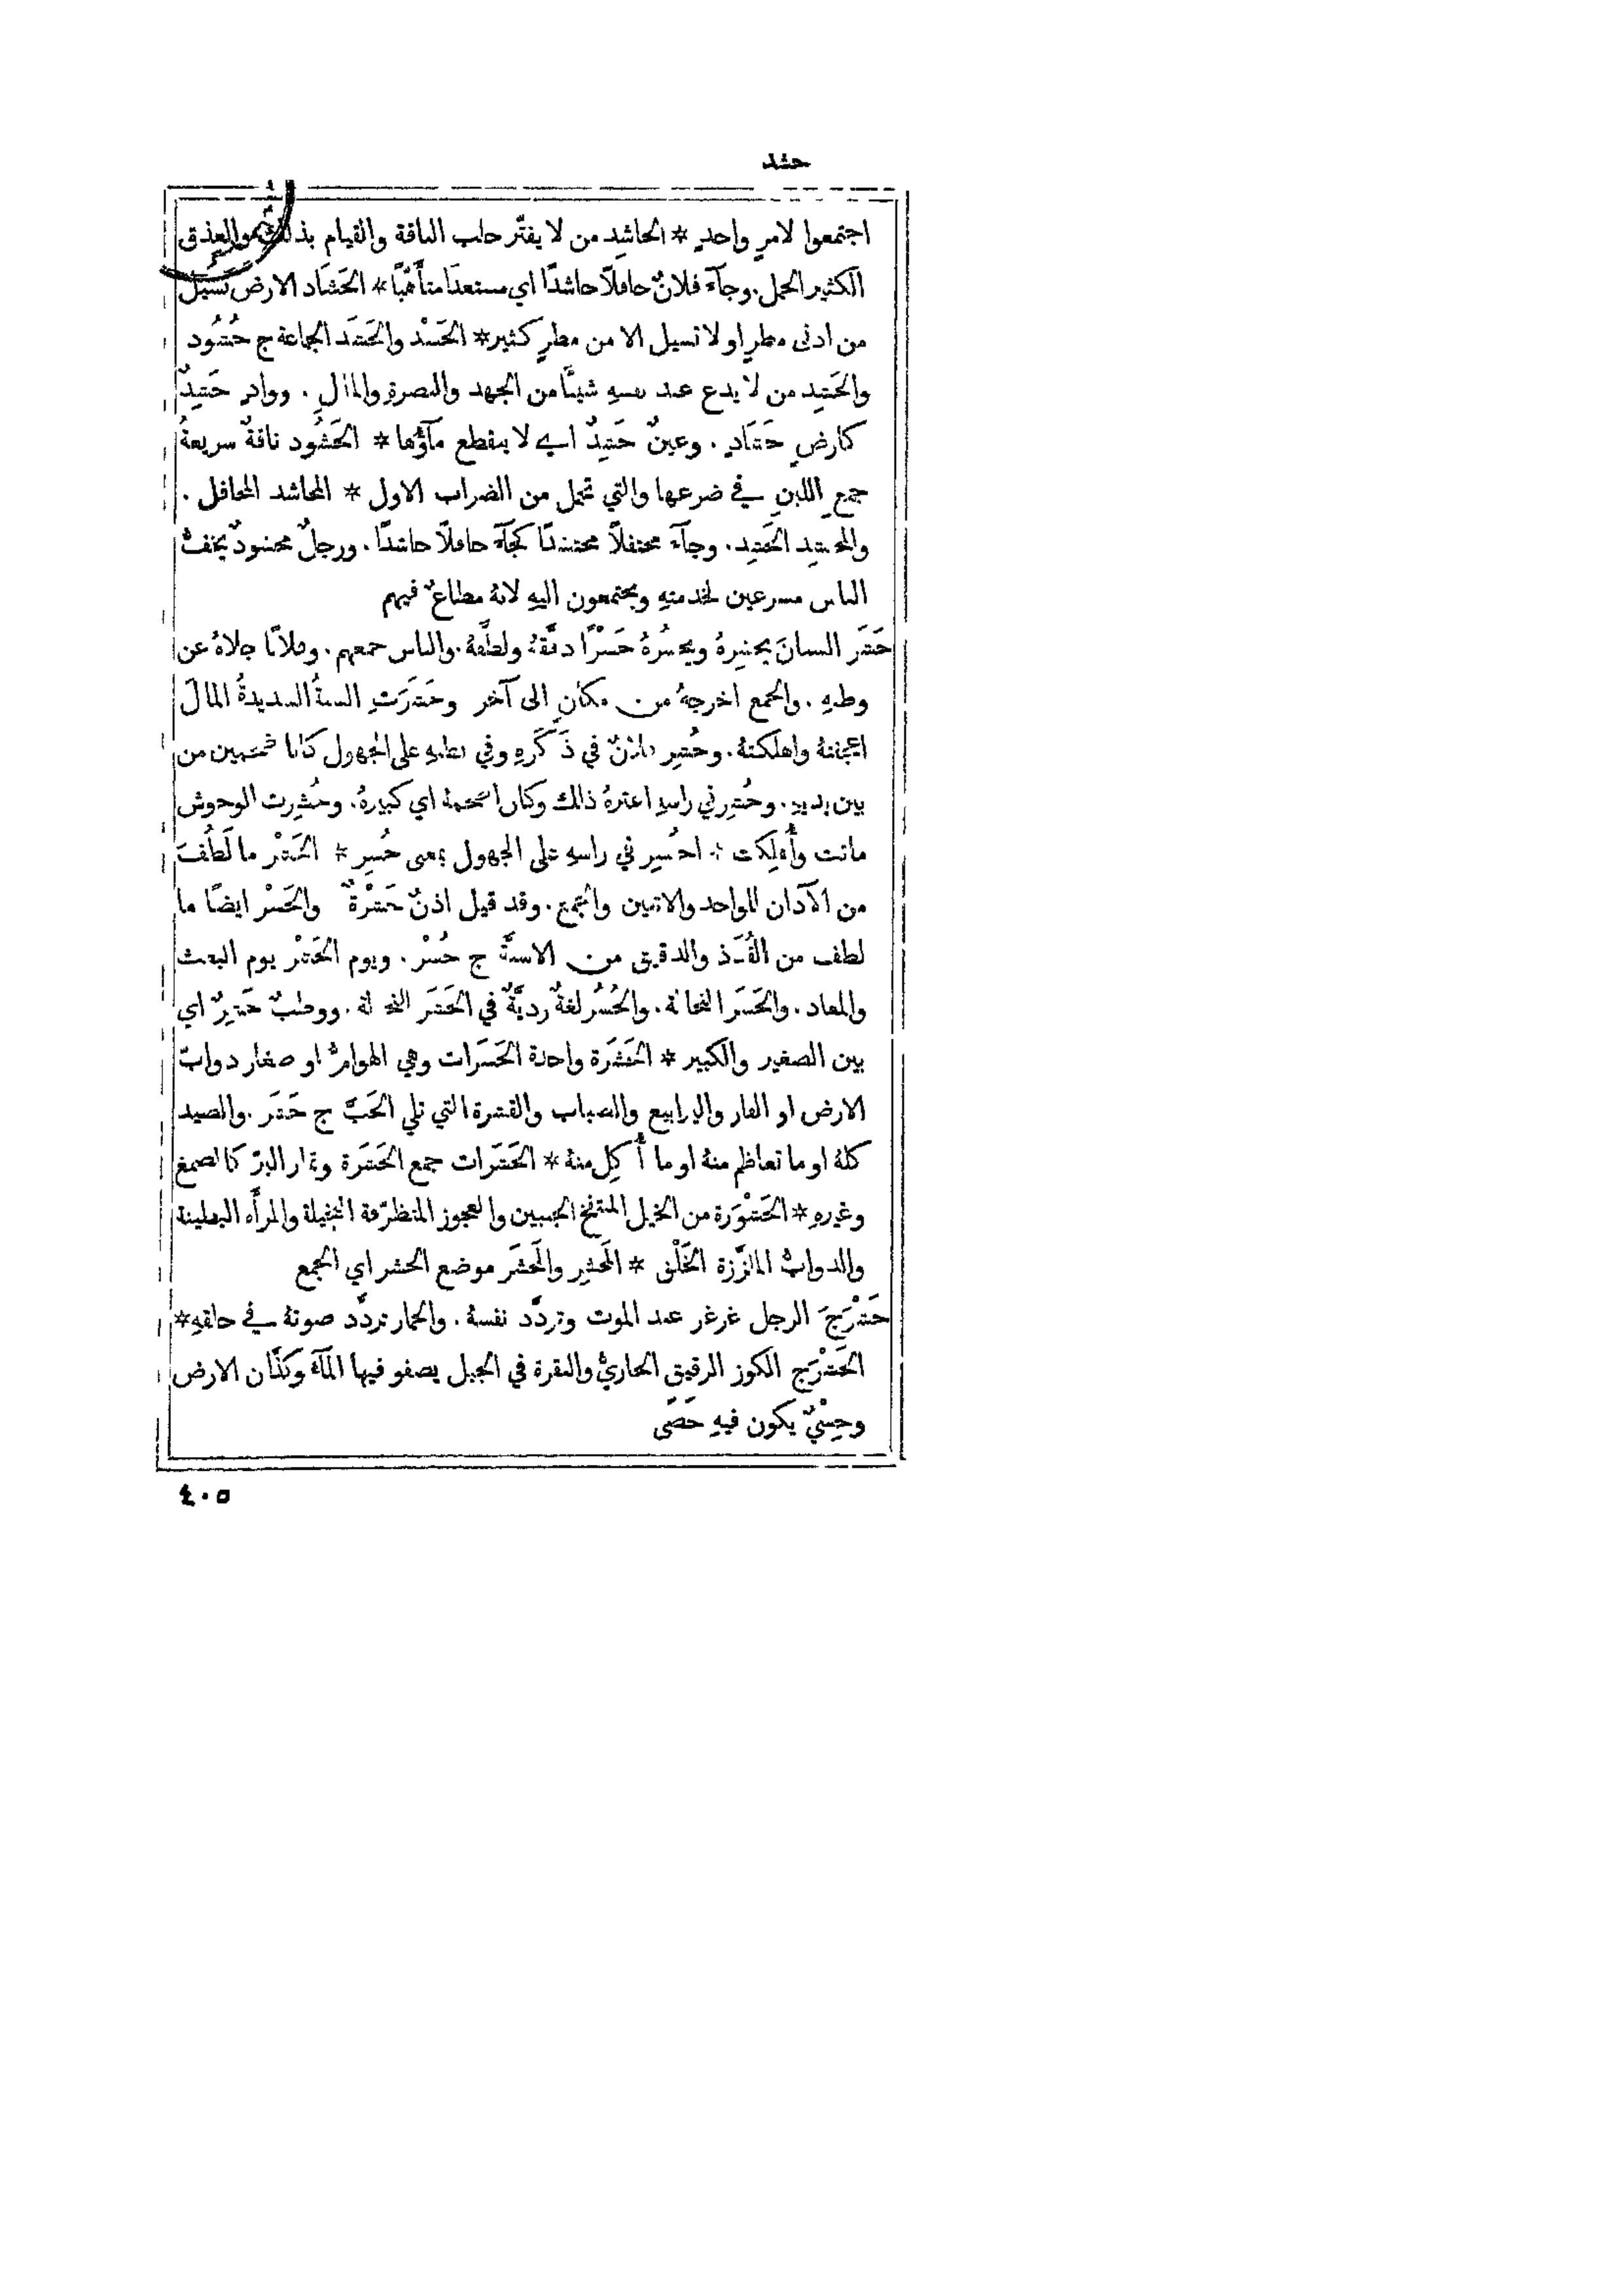 حشد
اجتمعوا لامرٍ واحدٍ * الحاشِد من لا يفتّر حلب الناقة والقيام بذلك والعِذق
الكثير الحمل. وجآءَ فلانٌ حافلًا حاشدًا اي مستعدًّا متأَهِّبًا * الحَشَاد الارض تسيل
من ادنى مطرٍ او لا تسيل الا من مطرٍ كثيرٍ * الحَشْد والحَشَد الجماعة ج حُشُود
والحَشِد من لا يدع عند نفسهِ شيئًا من الجهد والنصرة والمال. ووادٍ حَشِدٌ
كارضٍ حَشَادٍ. وعينٌ حَشِدٌ اي لا ينقطع مآؤُها * الحَشُود ناقةٌ سريعةُ
جمعِ اللبنِ في ضرعها والتي تحمل من الضراب الاول * المحاشد المحافل.
والمحتشِد الحَشِد. وجآءَ محتفلًا محتشدًا كجآءَ حافلًا حاشدًا. ورجلٌ محشودٌ يخفّ
الناس مسرعين لخدمتهِ ويجتمعون اليهِ لانهُ مطاعٌ فيهم
حَشَر السنانَ يحشِرهُ ويحشُرهُ حَشْرًا دقَّقهُ ولطَّفهُ. والناس جمعهم. وفلانًا جلاهُ عن
وطنهِ. والجمع اخرجهُ من مكانٍ الى آخر وحَشَرَتِ السنةُ الشديدةُ المالَ
اجحفتهُ واهلكتهُ. وحُشِر فلانٌ في ذَكَرهِ وفي بطنهِ على المجهول كانا ضخمين من
بين يديهِ. وحُشِر في راسهِ اعترهُ ذلك وكان اضخمهُ اي كبيرهُ. وحُشِرت الوحوش
ماتت وأُهلِكت * احتُشِر في راسهِ على المجهول بمعنى حُشِر * الحَشْر ما لَطُفَ
من الآذان للواحد والاثنين والجمع. وقد قيل اذنٌ حَشْرةٌ والحَشْر ايضًا ما
لطف من القُذَذ والدقيق من الاسنَّة ج حُشْر. ويوم الحَشْر يوم البعث
والمعاد. والحَشَر النخالة. والحُشُر لغةٌ رديَّةٌ في الحَشَر النخالة. ووطبٌ حَشِرٌ اي
بين الصغير والكبير * الحَشَرَة واحدة الحَشَرَات وهي الهوامّ او صغار دوابّ
الارض او الفار واليرابيع والضباب والقشرة التي تلي الحَبّ ج حَشَر. والصيد
كلهُ او ما تعاظم منهُ او ما أُكِل منهُ * الحَشَرات جمع الحَشَرَة وثمار البرّ كالصمغ
وغيرهِ * الحَشْوَرة من الخيل المنتفخ الجنبين والعجوز المتظرّفة البخيلة والمرأَة البطينة
والدوابّ الملزَّزة الخَلْق * المَحشِر والمَحشَر موضع الحشر اي الجمع
حَشْرَجَ الرجل غرغر عند الموت وتردَّد نفسهُ. والحمار تردَّد صوتهُ في حلقهِ *
الحَشْرَج الكوز الرقيق الحاريّ والنقرة في الجبل يصفو فيها المآءُ وكَذَّان الارض
وحِسْيٌ يكون فيهِ حَصًى
٤٠٥